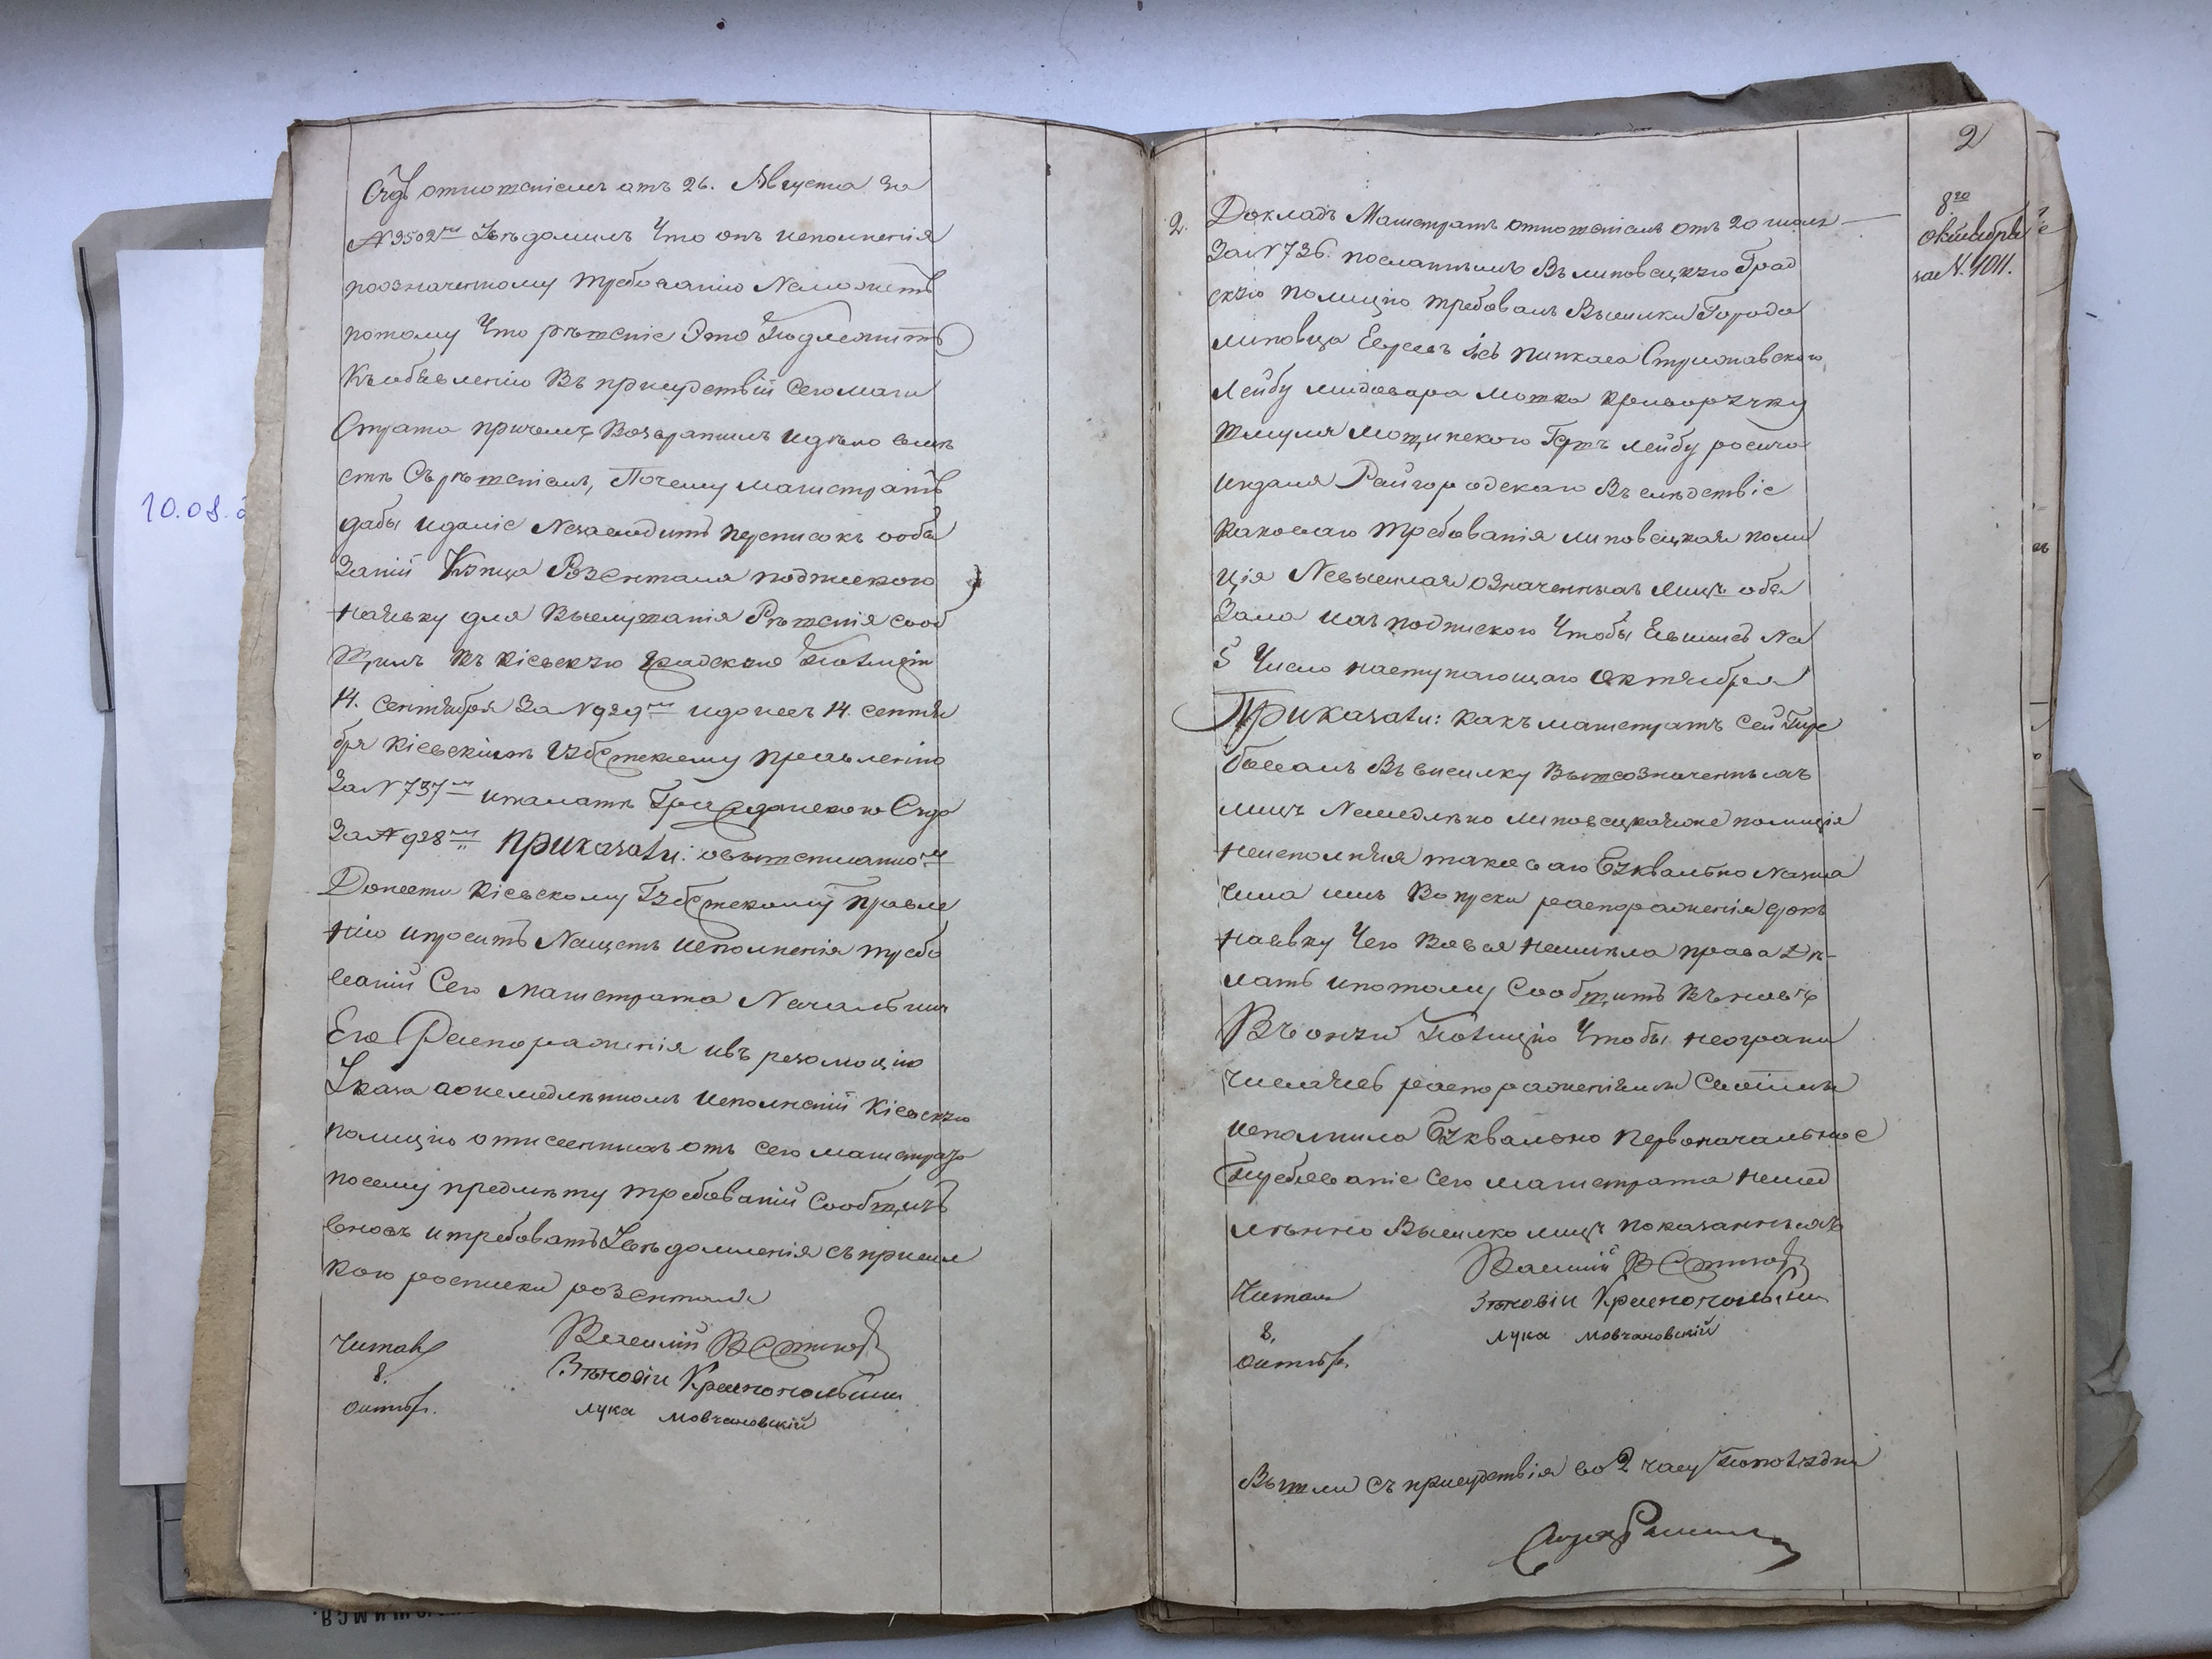 10.08.2
Судъ отношеніемъ отъ 26. Августа за
№ 3502мъ Увѣдомилъ Что онъ исполненія
поозначенному требованію Неможетъ
потому Что рѣшеніе Это подлежитъ
Къобъявленію Въ присудствіи Сего маги
Страта причемъ Возвратилъ идѣло вмѣ
стѣ Съ рѣшеніемъ, Почему магистратъ
дабы идалѣе Незаводить переписокъ ообя
заніи Купца Розентала подпискою
наявку для Выслушанія Рѣшенія сооб
щилъ въ Кіевскую Градскую полицію
14. Сентября За № 929мъ идонесъ 14. сентя
бря Кіевскимъ Губернскому правленію
За № 737мъ ипалатѣ Гражданскаго Суда
За № 928мъ приказали: овышеписанномъ
Донести Кіевскому Губернскому Правле
нію ипросить Нащетъ исполненія требо
ваній Сего магистрата Начальнич
Его Распоряженія ивъ резолюцію
Указа онемедлѣнномъ исполненіи Кіевскую
полицію отнесенныхъ отъ сего магистрата
посему предмѣту требованій Сообщить
вновь итребовать Увѣдомленія съ присыл
кою росписки розентала
Читалъ
8.
октября.
Василій
Зѣновій Краснопольскій
лука мовчановскій
2
8го
октября
за №. 1011.
2. Докладъ Магистратъ отношеніемъ отъ 20 июля
За № 736. посланнымъ Въ липовецкую Град
скую полицію требовалъ Высылки Города
липовца Евреевъ Пинкаса Стрижавскаго
Лейбу мидовара мошка криворучку
шмуля мощинского Гершъ лейбу росина
ицхаля Райгородскаго Въ слѣдствіе
каковаго требованія липовецкая поли
ція Невысылая означенныхъ лицъ обя
зала ихъ подпискою Чтобы Явились На
5 Число наступающаго октября
Приказали: какъ магистратъ сей тре
бовалъ Въ высылку Вышеозначенныхъ
лицъ Немедлѣнно липовецкаяже полиція
неисполняя таковаго Буквально Назна
чила имъ Вопреки распоряженія срокъ
наявку Чего Вовся неимѣла права Дѣ-
лать ипотому Сообщить Въновь
Въ оную полицію Чтобы неограни
чиваясь распоряженіями Своими
исполнила Буквально первоначальное
требованіе Сего магистрата немед
лѣнно Высылко лицъ показанныхъ
Читалъ
8.
октября.
Василій
Зѣновій Краснопольскій
лука мовчановскій
Вышли Съ присудствія во 2 часу пополудни